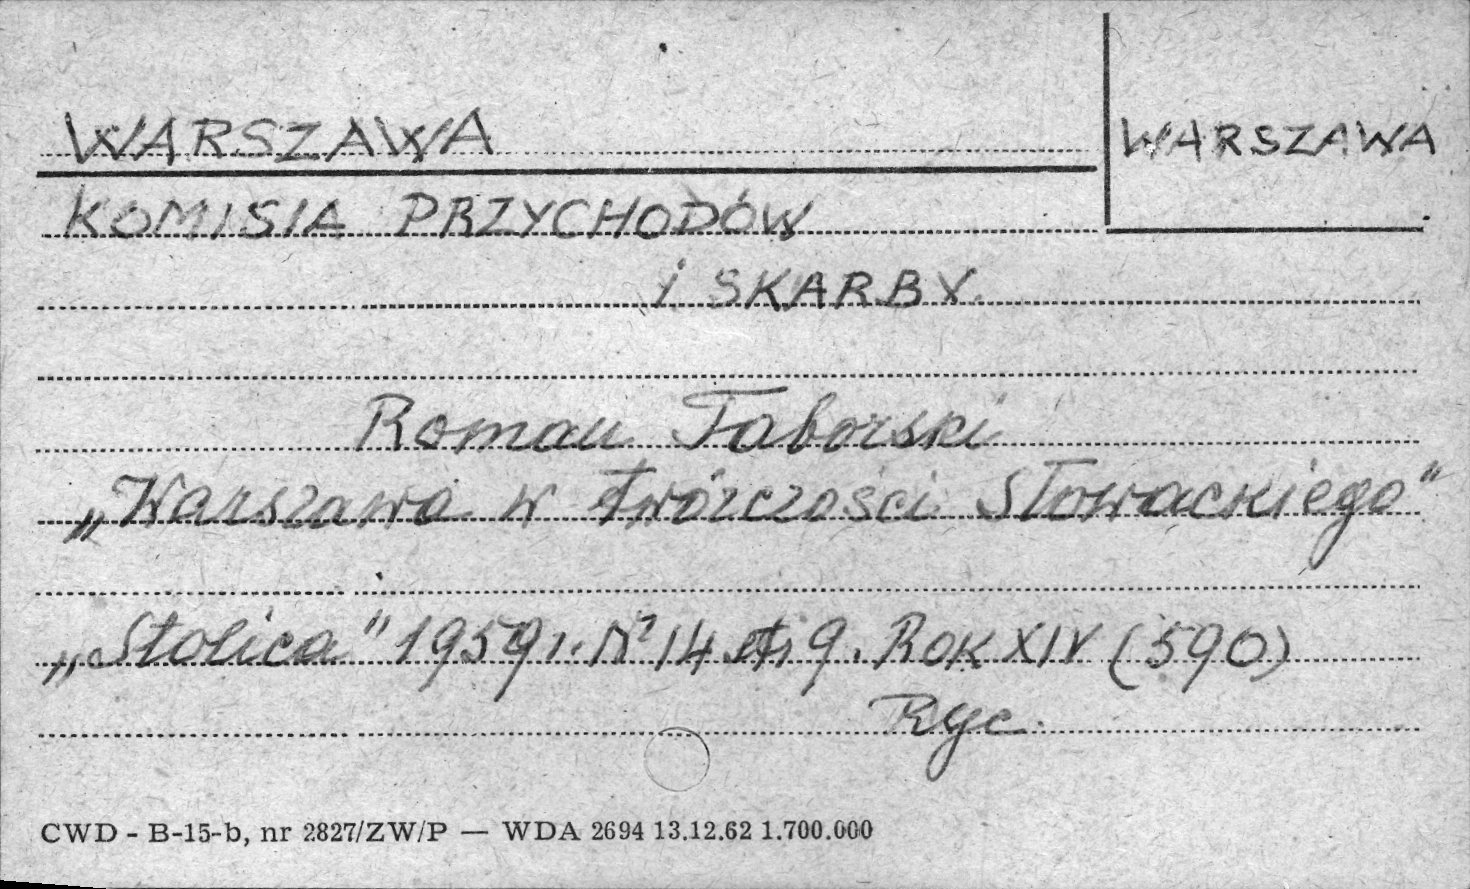 WARSZAWA
WARSZAWA
KOMISIA PRZYCHODÓW
i SKARBY.
Roman Taborski
„Warszawa w twórczości Słowackiego"
„Stolica" 1959 r. Nr 14 str 9. Rok XIV (590)
Ryc.
CWD - B-15-b, nr 2827/ZW/P — WDA 2694 13.12.62 1.700.000